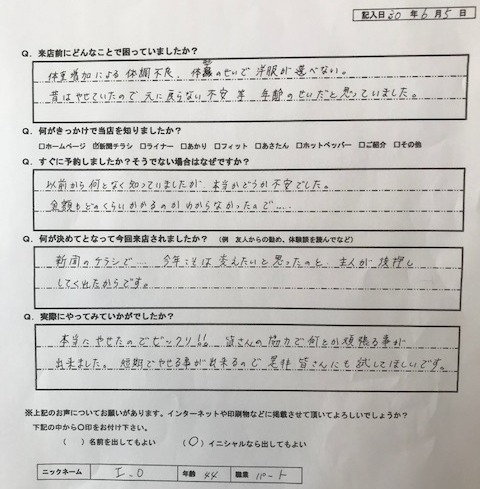 記入日 30 年 6 月 5 日
Q. 来店前にどんなことで困っていましたか？
体重増加による体調不良、体型のせいで洋服が選べない。
昔はやせていたので元に戻らない不安 等 年齢のせいだと思っていました。
Q. 何がきっかけで当店を知りましたか？
□ホームページ ☑新聞チラシ □ライナー □あかり □フィット □あさたん □ホットペッパー □ご紹介 □その他
Q. すぐに予約しましたか？そうでない場合はなぜですか？
以前から何となく知っていましたが、本当かどうか不安でした。
金額もどのくらいかかるのかわからなかったので....
Q. 何が決めてとなって今回来店されましたか？ （例 友人からの勧め、体験談を読んでなど）
新聞のチラシで.... 今年こそは変えたいと思ったのと、主人が後押し
してくれたからです。
Q. 実際にやってみていかがでしたか？
本当にやせたのでビックリ!! 皆さんの協力で何とか頑張る事が
出来ました。短期でやせる事が出来るので是非皆さんにも試してほしいです。
※上記のお声についてお願いがあります。インターネットや印刷物などに掲載させて頂いてよろしいでしょうか？
下記の中から〇印をお付け下さい。
（ ）名前を出してもよい （〇）イニシャルなら出してもよい
ニックネーム I.O 年齢 44 職業 パート